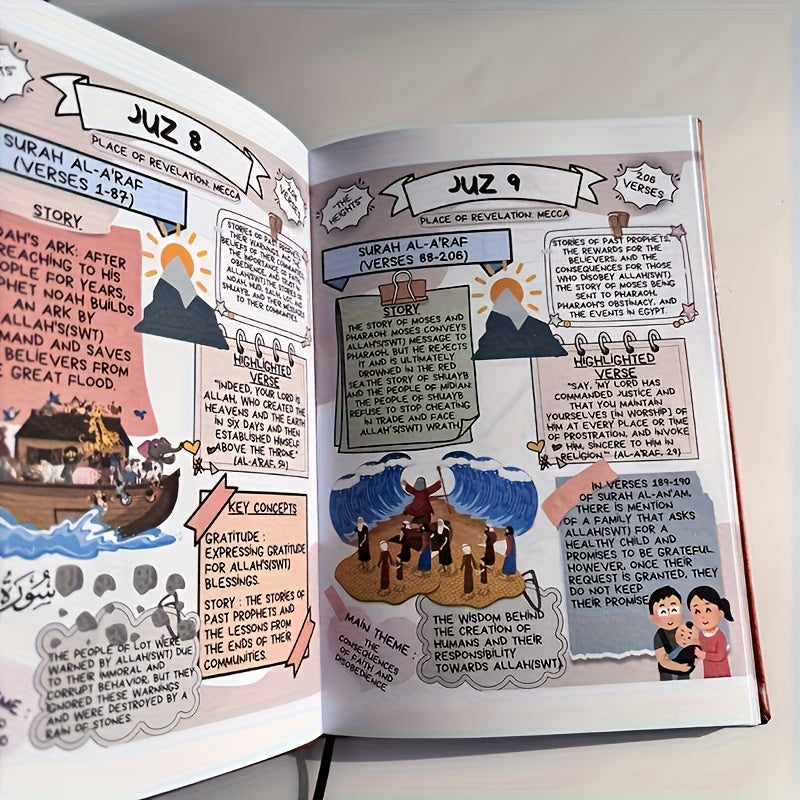 JUZ 8
PLACE OF REVELATION: MECCA
SURAH AL-A'RAF
(VERSES 1-87)
STORY
ARK: AFTER
PREACHING TO HIS
PEOPLE FOR YEARS,
PROPHET NOAH BUILDS
AN ARK BY
ALLAH'S(SWT)
AND SAVES
BELIEVERS FROM
GREAT FLOOD.
STORIES OF PAST PROPHETS,
THEIR WARNINGS, AND
THE IMPORTANCE OF
OBEDIENCE AND TRUST
ALLAH(SWT). THE STORIES OF
NOAH, HUD, SALIH, LOT,
SHUAYB, AND THEIR MESSAGES
TO THEIR COMMUNITIES.
HIGHLIGHTED
VERSE
"INDEED, YOUR LORD IS
ALLAH, WHO CREATED THE
HEAVENS AND THE EARTH
IN SIX DAYS AND THEN
ESTABLISHED HIMSELF
ABOVE THE THRONE."
(AL-A'RAF, 54)
KEY CONCEPTS
GRATITUDE :
EXPRESSING GRATITUDE
FOR ALLAH'S(SWT)
BLESSINGS.
STORY : THE STORIES OF
PAST PROPHETS AND
THE LESSONS FROM
THE ENDS OF THEIR
COMMUNITIES.
سورة
THE PEOPLE OF LOT WERE
WARNED BY ALLAH(SWT) DUE
TO THEIR IMMORAL AND
CORRUPT BEHAVIOR, BUT THEY
IGNORED THESE WARNINGS
AND WERE DESTROYED BY A
RAIN OF STONES.
"THE
HEIGHTS"
JUZ 9
206
VERSES
PLACE OF REVELATION: MECCA
SURAH AL-A'RAF
(VERSES 88-206)
STORY
THE STORY OF MOSES AND
PHARAOH: MOSES CONVEYS
ALLAH'S(SWT) MESSAGE TO
PHARAOH, BUT HE REJECTS
IT AND IS ULTIMATELY
DROWNED IN THE RED
SEA.THE STORY OF SHUAYB
AND THE PEOPLE OF MIDIAN:
THE PEOPLE OF SHUAYB
REFUSE TO STOP CHEATING
IN TRADE AND FACE
ALLAH'S(SWT) WRATH.
STORIES OF PAST PROPHETS,
THE REWARDS FOR THE
BELIEVERS, AND THE
CONSEQUENCES FOR THOSE
WHO DISOBEY ALLAH(SWT).
THE STORY OF MOSES BEING
SENT TO PHARAOH,
PHARAOH'S OBSTINACY, AND
THE EVENTS IN EGYPT.
HIGHLIGHTED
VERSE
"SAY, 'MY LORD HAS
COMMANDED JUSTICE AND
THAT YOU MAINTAIN
YOURSELVES [IN WORSHIP] OF
HIM AT EVERY PLACE OR TIME
OF PROSTRATION, AND INVOKE
HIM, SINCERE TO HIM IN
RELIGION.'" (AL-A'RAF, 29)
MAIN THEME :
THE
CONSEQUENCES
OF FAITH AND
DISOBEDIENCE
THE WISDOM BEHIND
THE CREATION OF
HUMANS AND THEIR
RESPONSIBILITY
TOWARDS ALLAH(SWT)
IN VERSES 189-190
OF SURAH AL-AN'AM,
THERE IS MENTION
OF A FAMILY THAT ASKS
ALLAH(SWT) FOR A
HEALTHY CHILD AND
PROMISES TO BE GRATEFUL.
HOWEVER, ONCE THEIR
REQUEST IS GRANTED, THEY
DO NOT KEEP
THEIR PROMISE